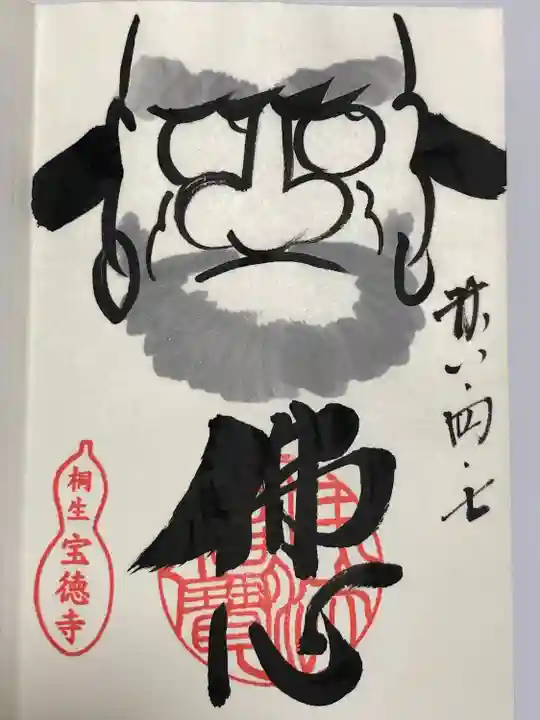 廿八・四・七
佛心
桐生
宝徳寺